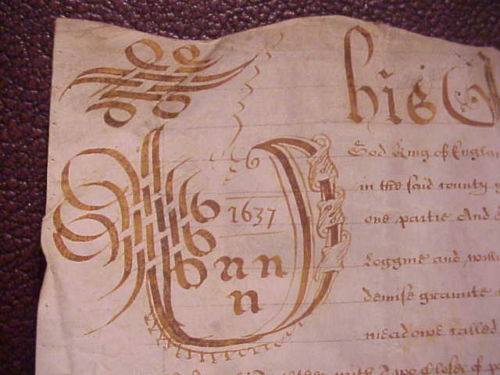 This
God King of Englan
1637 in the said county
one partie And
nnn
n
Loggine and
demise graunte
meadowe called